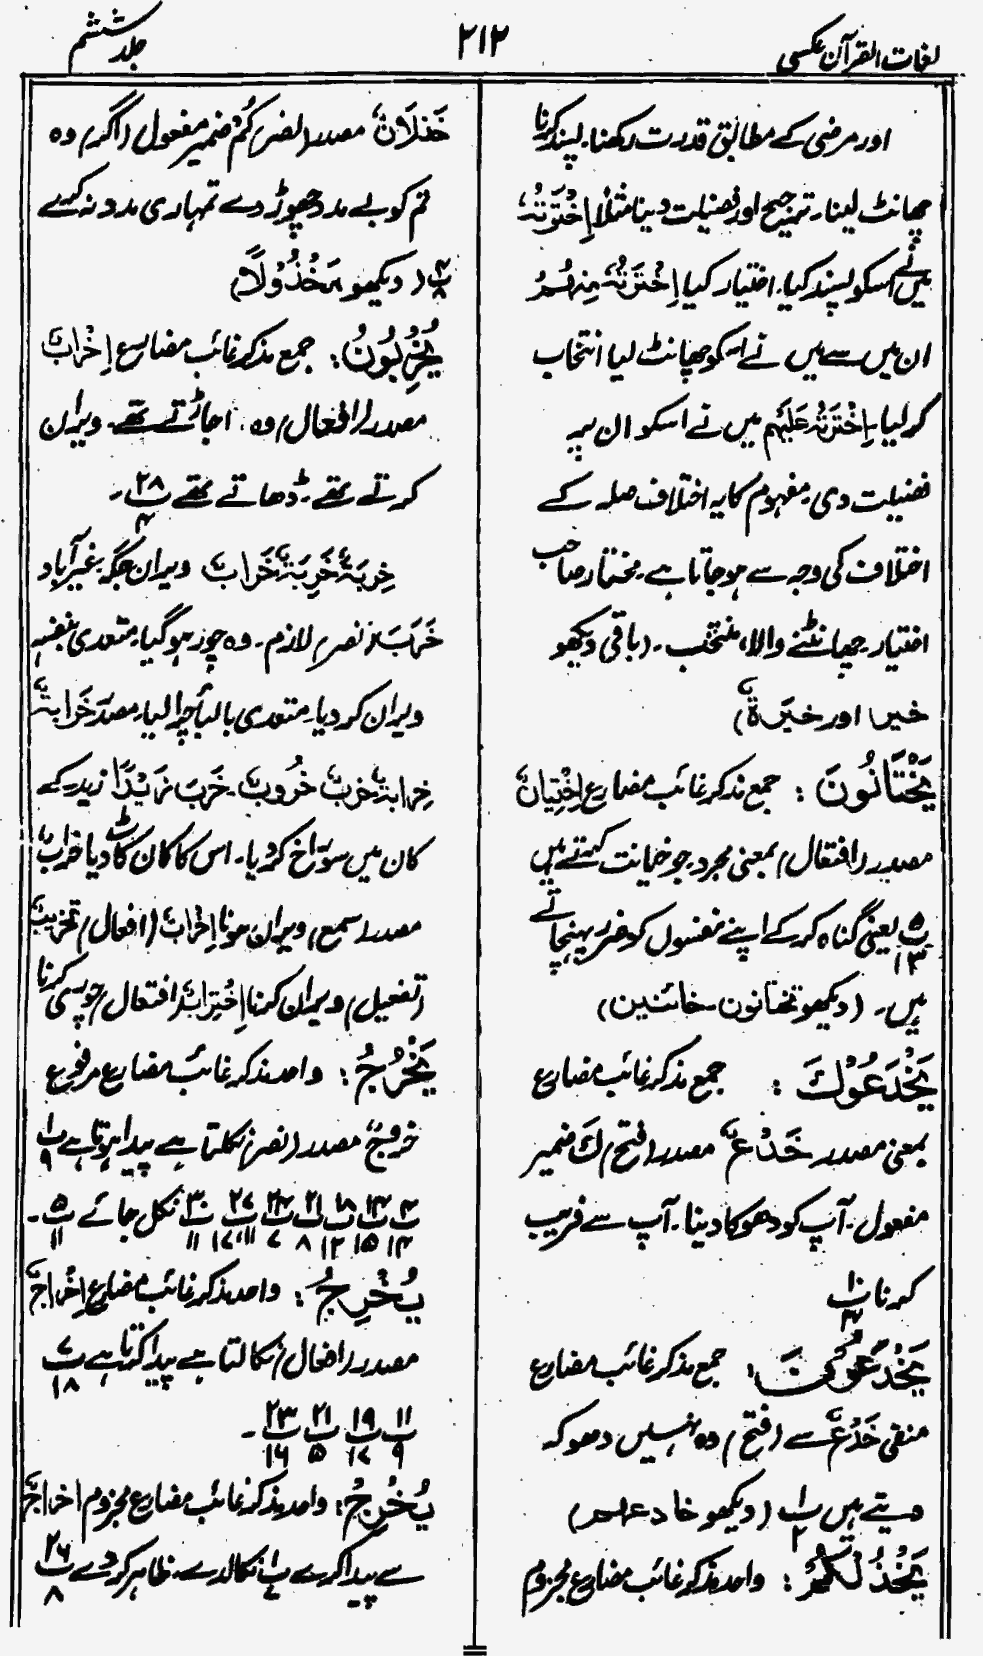 لغات القرآن عکسی
۲۱۲
جلد ششم
اور مرضی کے مطابق قدرت رکھنا۔ پسند کرنا
چھانٹ لینا۔ ترجیح اور فضیلت دینا مثلاً اِخْتَرْتُہٗ
میں نے اسکو پسند کیا۔ اختیار کیا اِخْتَرْتُہٗ مِنْہُمْ
ان میں سے میں نے اسکو چھانٹ لیا انتخاب
کر لیا۔ اِخْتَرْتُہٗ عَلَیْہِم میں نے اسکو ان پر
فضیلت دی۔ مفہوم کا یہ اختلاف صلہ کے
اختلاف کی وجہ سے ہو جاتا ہے۔ مختار صاحب
اختیار۔ چھانٹنے والا، منتخب۔ (باقی دیکھو
خیرا اور خیرۃٌ)
یَخْتَانُونَ : جمع مذکر غائب مضارع اِخْتِیَانٌ
مصدر (افتعال) بمعنی مجرد۔ جو خیانت کہتے ہیں
پ ۵/۱۳ یعنی گناہ کرکے اپنے نفسوں کو ضرر پہنچاتے
ہیں۔ (دیکھو تختانون۔ خائنین)
یَخْدَعُوْكَ : جمع مذکر غائب مضارع
بمعنی مصدر خَدْعٌ مصدر (فتح) كَ ضمیر
مفعول۔ آپ کو دھوکا دینا۔ آپ سے فریب
کرنا پ ۱۰/۴
یَخْدَعُوْنَ : جمع مذکر غائب مضارع
منفی خَدْعٌ سے (فتح) وہ نہیں دھوکہ
دیتے ہیں پ ۱/۲ (دیکھو خادعہم)
یَخْذُلْکُمْ : واحد مذکر غائب مضارع مجزوم
خَذْلَانٌ مصدر (نصر) کُمْ ضمیر مفعول (اگر) وہ
تم کو بے مدد چھوڑ دے تمہاری مدد نہ کرے
پ ۴/۸ (دیکھو مَخْذُوْلًا)
یُخْرِبُونَ : جمع مذکر غائب مضارع اِخْرَابٌ
مصدر (افعال) وہ اجاڑتے تھے۔ ویران
کرتے تھے۔ ڈھاتے تھے پ ۲۸/۴۔
خِرْبَۃٌ خَرِبَۃٌ خَرَابٌ ویران جگہ غیر آباد
خَرَبَ (نصر) لازم۔ وہ چور ہو گیا۔ متعدی بنفسہٖ
ویران کر دیا۔ متعدی بالبا چرا لیا۔ مصدر خَرَابَۃٌ
خِرابۃٌ خَرْبٌ خُرُوبٌ۔ خَرَبَ زَیْدًا زید کے
کان میں سوراخ کر دیا۔ اس کا کان کاٹ دیا خرابٌ
مصدر (سمع) ویران ہونا اِخْرَابٌ (افعال) تخریبٌ
(تفعیل) ویران کرنا اِخْتِرَابٌ (افتعال) چوری کرنا
یَخْرُجُ : واحد مذکر غائب مضارع مرفوع
خروجٌ مصدر (نصر) نکلتا ہے پیدا ہوتا ہے پ ۱/۹
پ ۴/۱۴ پ ۱۴/۱۵ پ ۱۸/۱۲ پ ۲۱/۸ پ ۲۴/۷ پ ۲۷/۱۱،۱۷ پ ۳۰/۱۱ نکل جائے پ ۵/۱۱۔
یُخْرِجُ : واحد مذکر غائب مضارع اِخْرَاجٌ
مصدر (افعال) نکالتا ہے پیدا کرتا ہے پ ۷/۱۸
پ ۱۱/۹ پ ۱۹/۱۷ پ ۲۱/۵ پ ۲۳/۱۶۔
یُخْرِجْ : واحد مذکر غائب مضارع مجزوم اخراجٌ
سے پیدا کرے پ ۱/۷ نکالدے۔ ظاہر کر دے پ ۲۶/۸